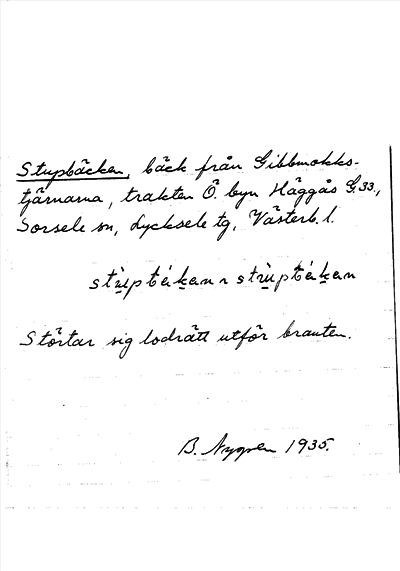 Stupbäcken, bäck från Gibbmokks-
tjärnarna, trakten Ö. byn Häggås G.33.,
Sorsele sn, Lycksele tg, Västerb. l.
stu̱pbäḵan ~ stru̱pbäḵan
Störtar sig lodrätt utför branten.
B. Nygren 1935.